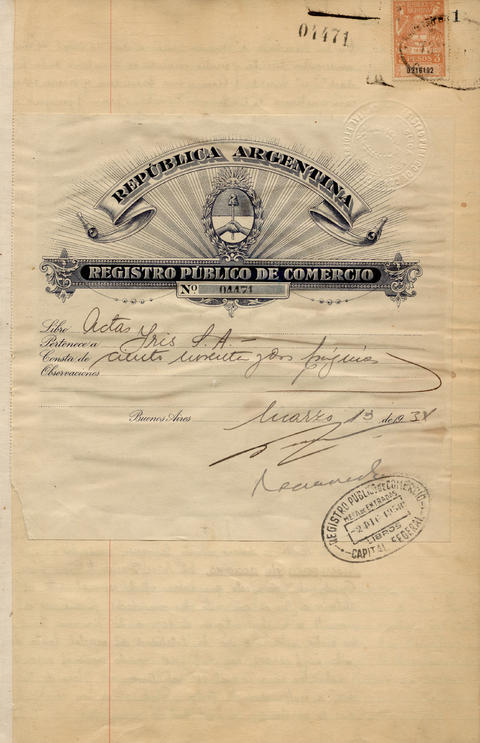 04471
1
PESOS 3
0216192
REPÚBLICA ARGENTINA
REGISTRO PÚBLICO DE COMERCIO
Nº 04471
Libro Actas
Pertenece a Iris S.A.-
Consta de ciento noventa y dos páginas
Observaciones
Buenos Aires Marzo 13 de 1931
REGISTRO PUBLICO DE COMERCIO
MESA DE ENTRADAS
LIBROS
CAPITAL FEDERAL